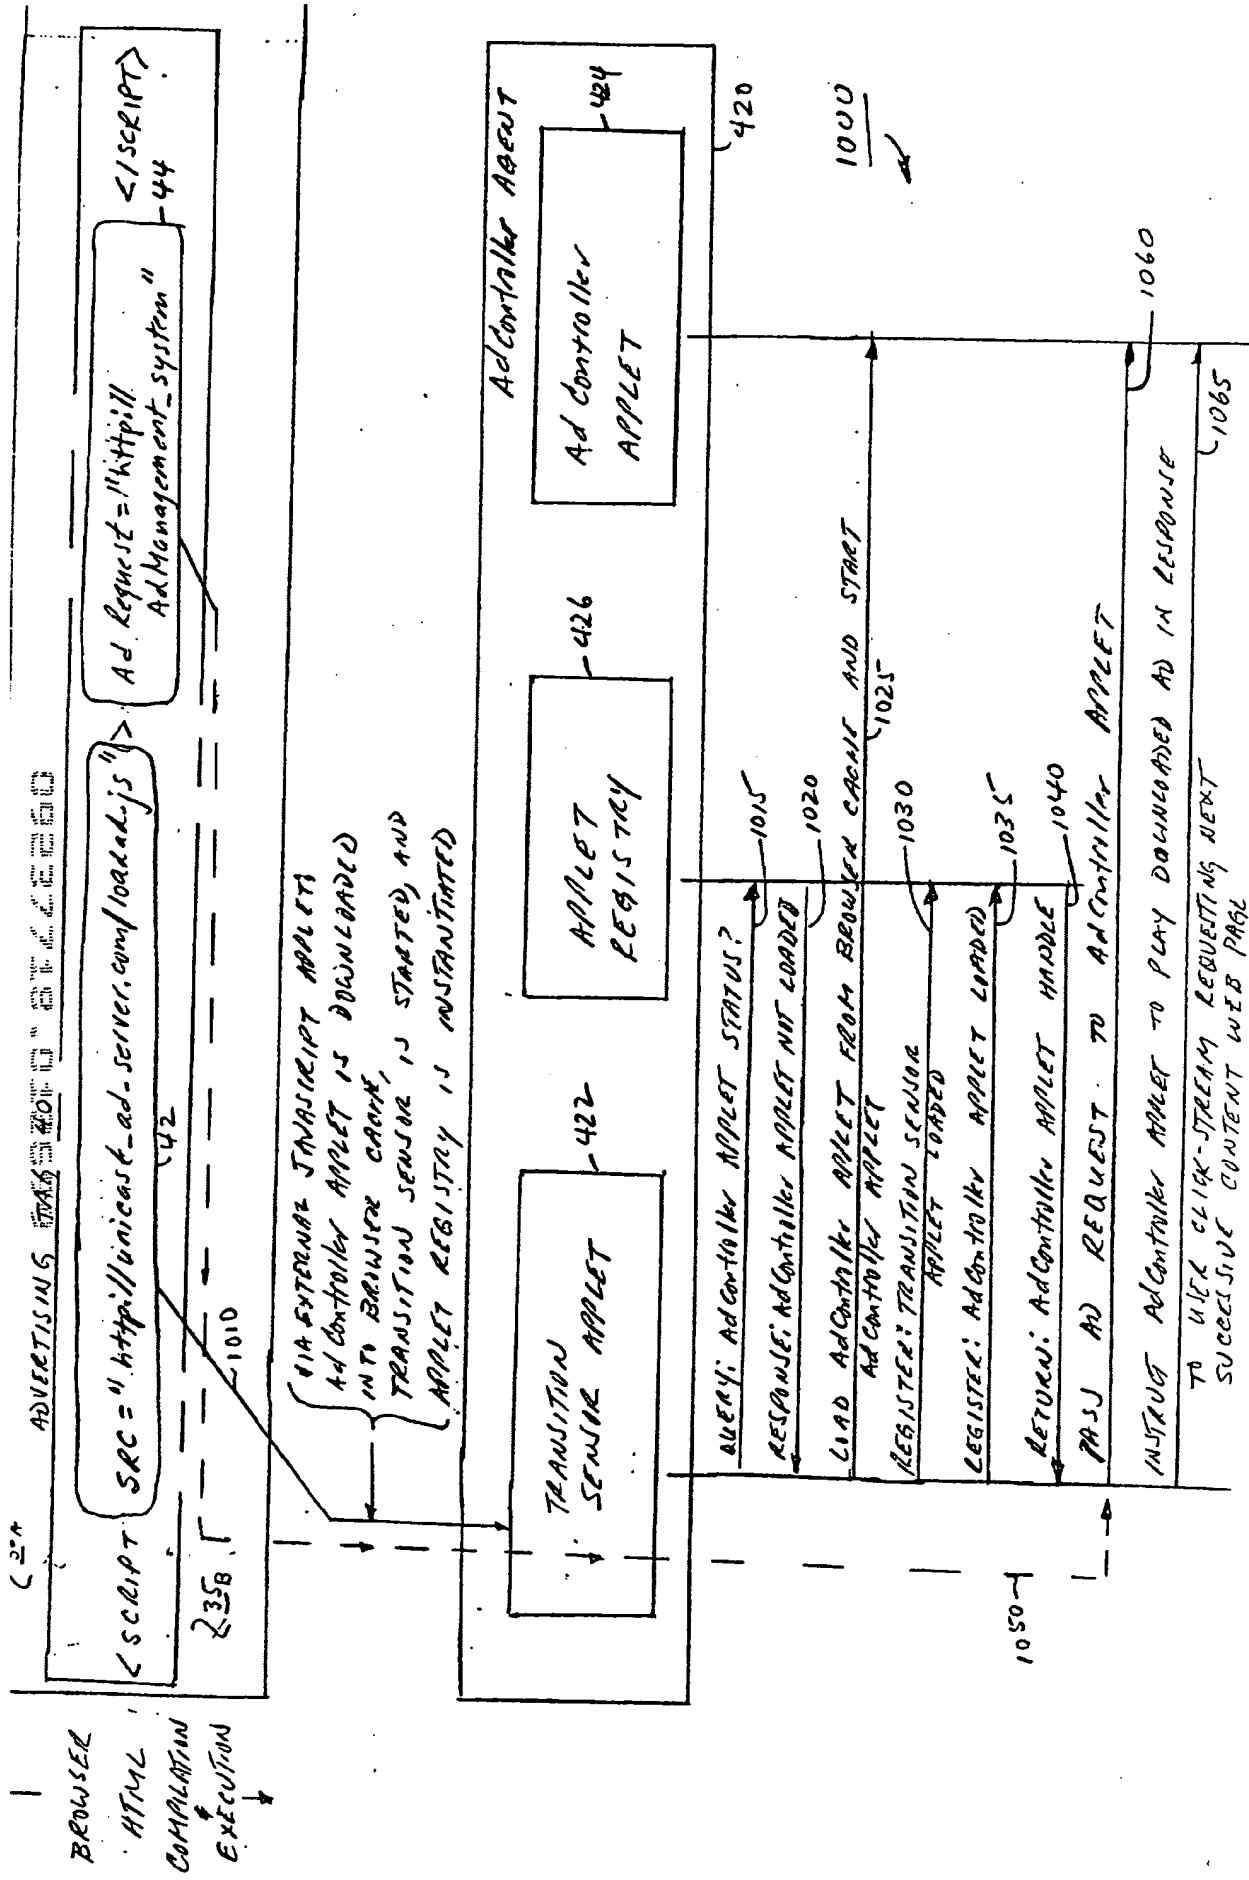 ADVERTISING
<SCRIPT SRC="http://unicast_ad-server.com/loadad.js"> Ad Request="http://
AdManagement_system"
</SCRIPT>
42
44
35B
1010
BROWSER
HTML
COMPILATION
&
EXECUTION
VIA EXTERNAL JAVASCRIPT APPLET:
AdController APPLET IS DOWNLOADED
INTO BROWSER CACHE,
TRANSITION SENSOR IS STARTED, AND
APPLET REGISTRY IS INSTANTIATED
AdController AGENT
TRANSITION
SENSOR APPLET
422
APPLET
REGISTRY
426
Ad Controller
APPLET
424
420
1000
QUERY: AdController APPLET STATUS?
1015
RESPONSE: AdController APPLET NOT LOADED
1020
LOAD AdController APPLET FROM BROWSER CACHE AND START
AdController APPLET
1025
REGISTER: TRANSITION SENSOR
APPLET LOADED
1030
REGISTER: AdController APPLET LOADED
1035
RETURN: AdController APPLET HANDLE
1040
1050
PASS AD REQUEST TO AdController APPLET
1060
INSTRUCT AdController APPLET TO PLAY DOWNLOADED AD IN RESPONSE
TO USER CLICK-STREAM REQUESTING NEXT
SUCCESSIVE CONTENT WEB PAGE
1065